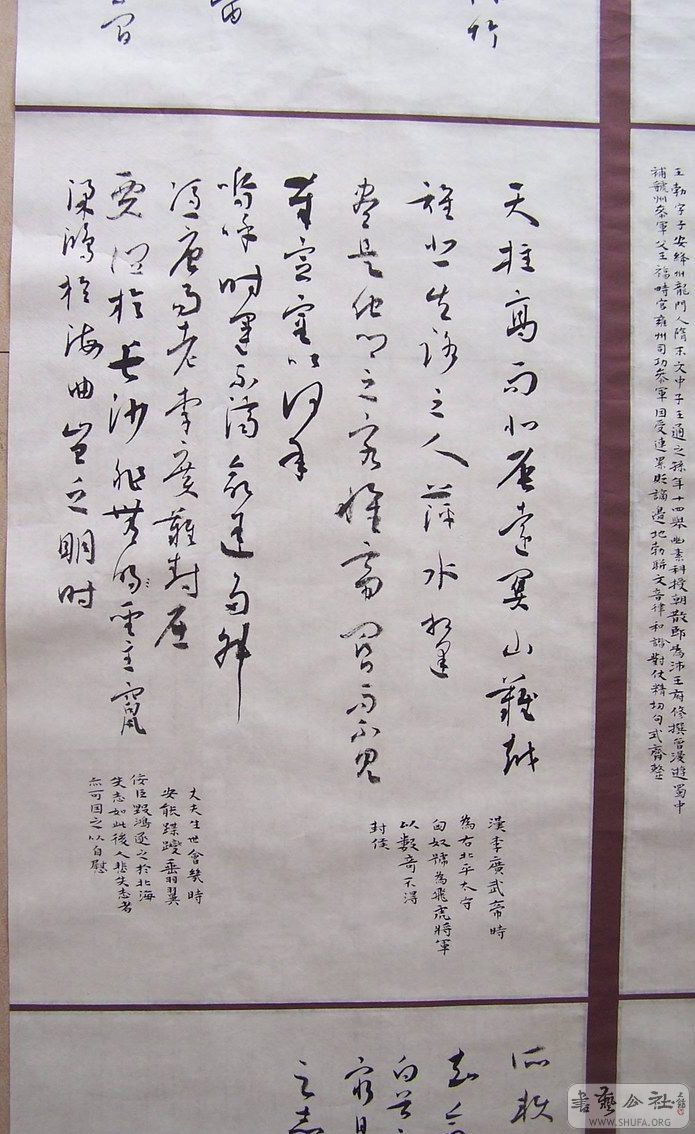 王勃字子安絳州龍門人隋末文中子王通之孫年十四舉幽素科授朝散郎為沛王府修撰曾漫遊蜀中
補虢州參軍父王福畤官雍州司功參軍因受連累貶謫邊地勃駢文音律和諧對仗精切句式齊整
竹
天柱高而北辰遠關山難越
誰悲失路之人萍水相逢
盡是他鄉之客懷帝閽而不見
奉宣室以何年
嗚呼時運不濟命途多舛
馮唐易老李廣難封屈
賈誼於長沙非無明聖主竄
梁鴻於海曲豈乏明時
漢李廣武帝時
為右北平太守
匈奴號為飛虎將軍
以數奇不得
封侯
丈夫生世會幾時
安能蹀躞垂羽翼
佞臣毀鴻逐之於北海
失志如此後人悲失志者
亦可因之以自慰
所賴
白首
窮且
之志
書藝公社
WWW.SHUFA.ORG